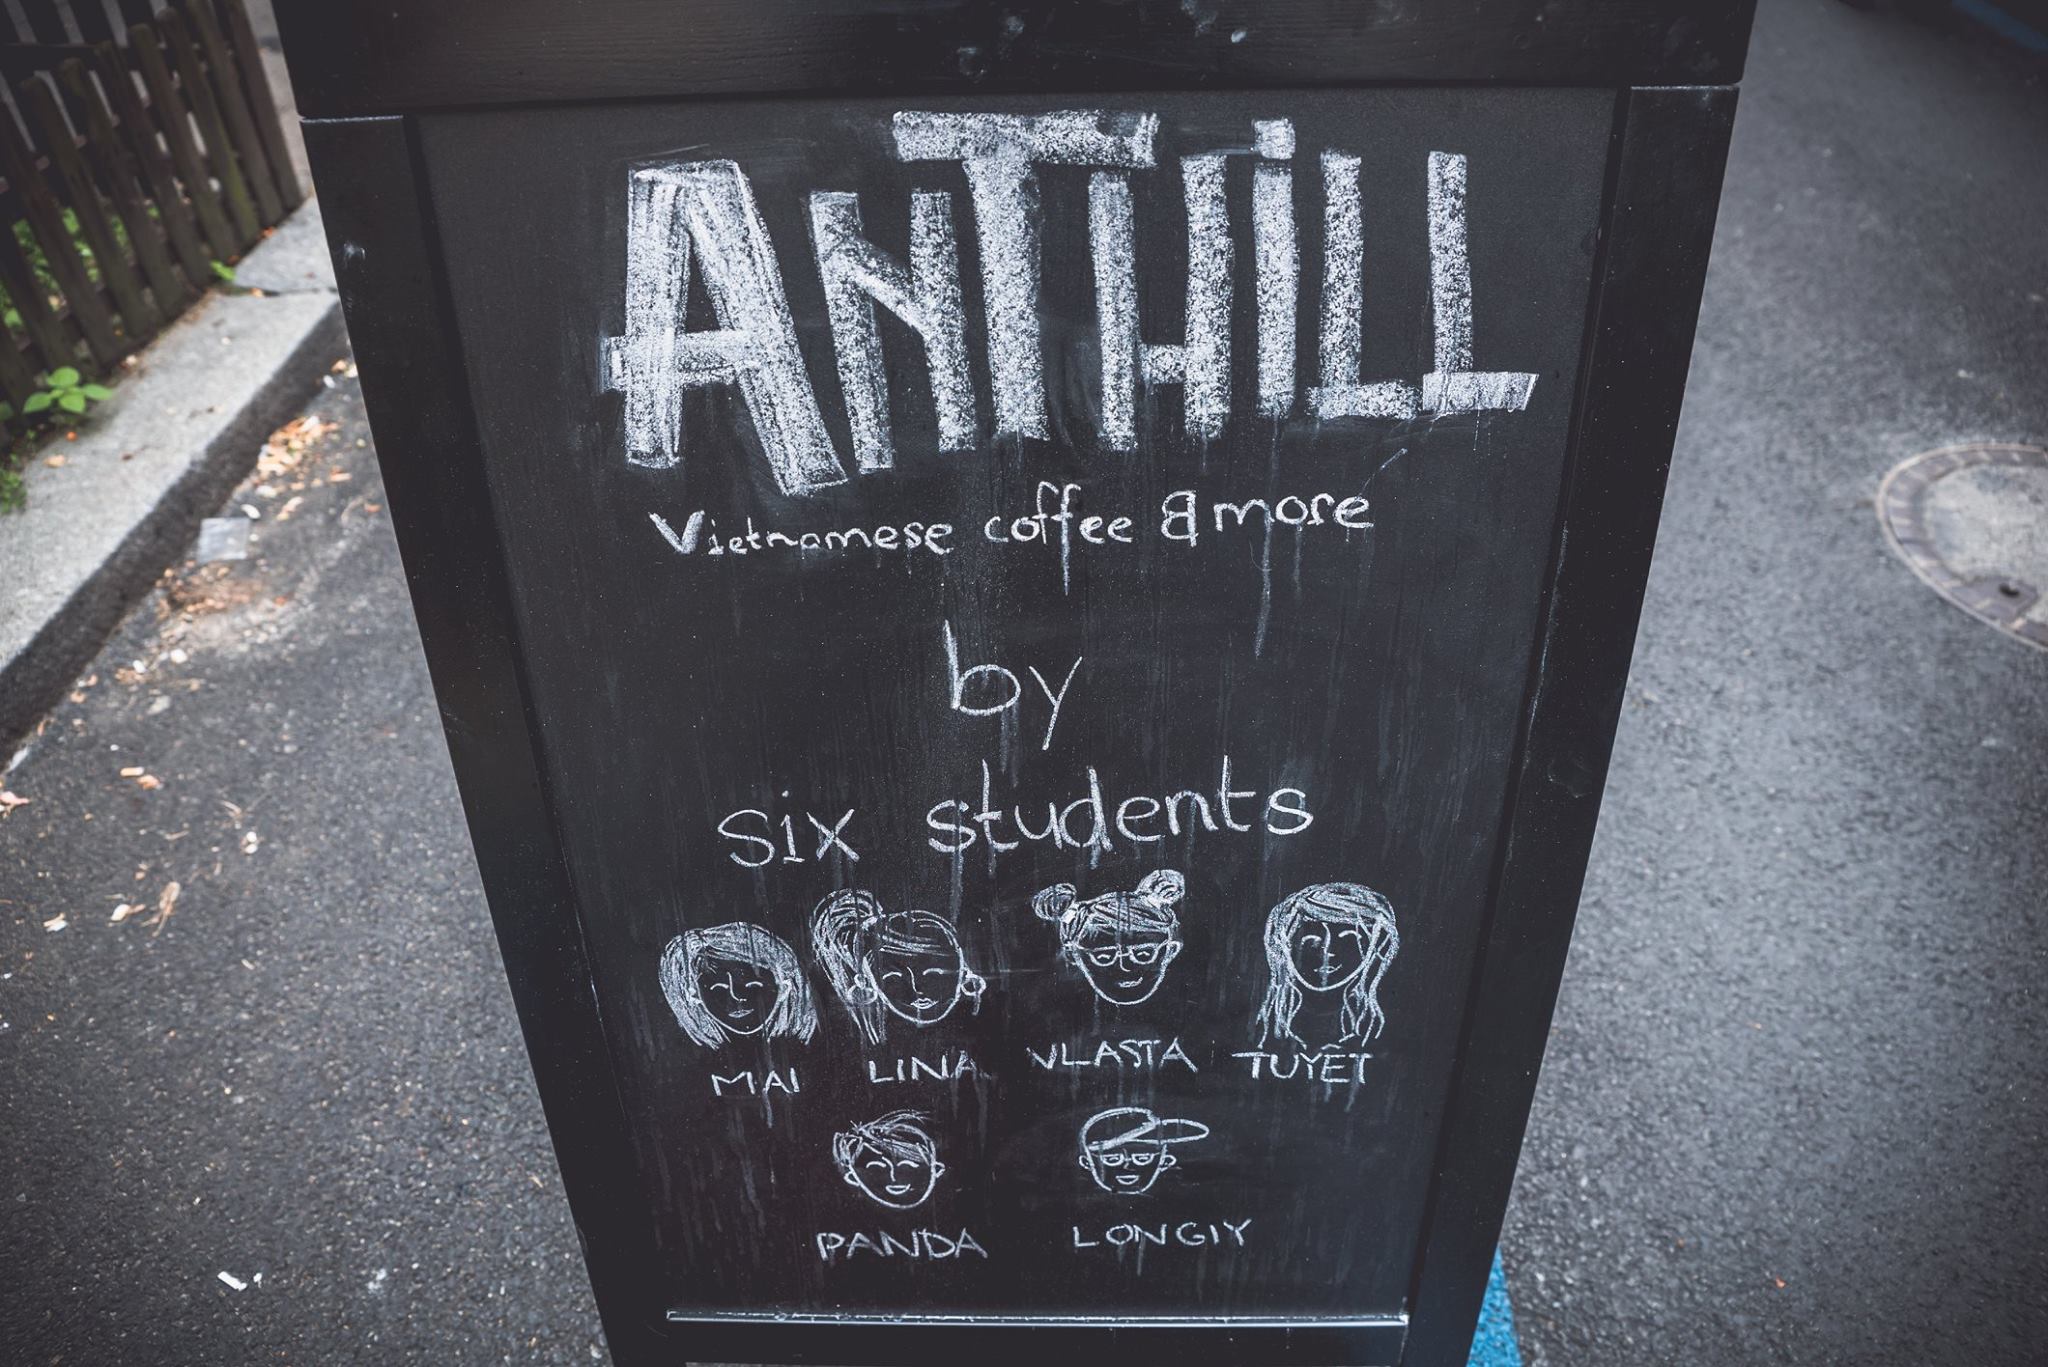 ANTHiLL
Vietnamese coffee & more
by
six students
MAI LINA VLASTA TUYẾT
PANDA LONGIY